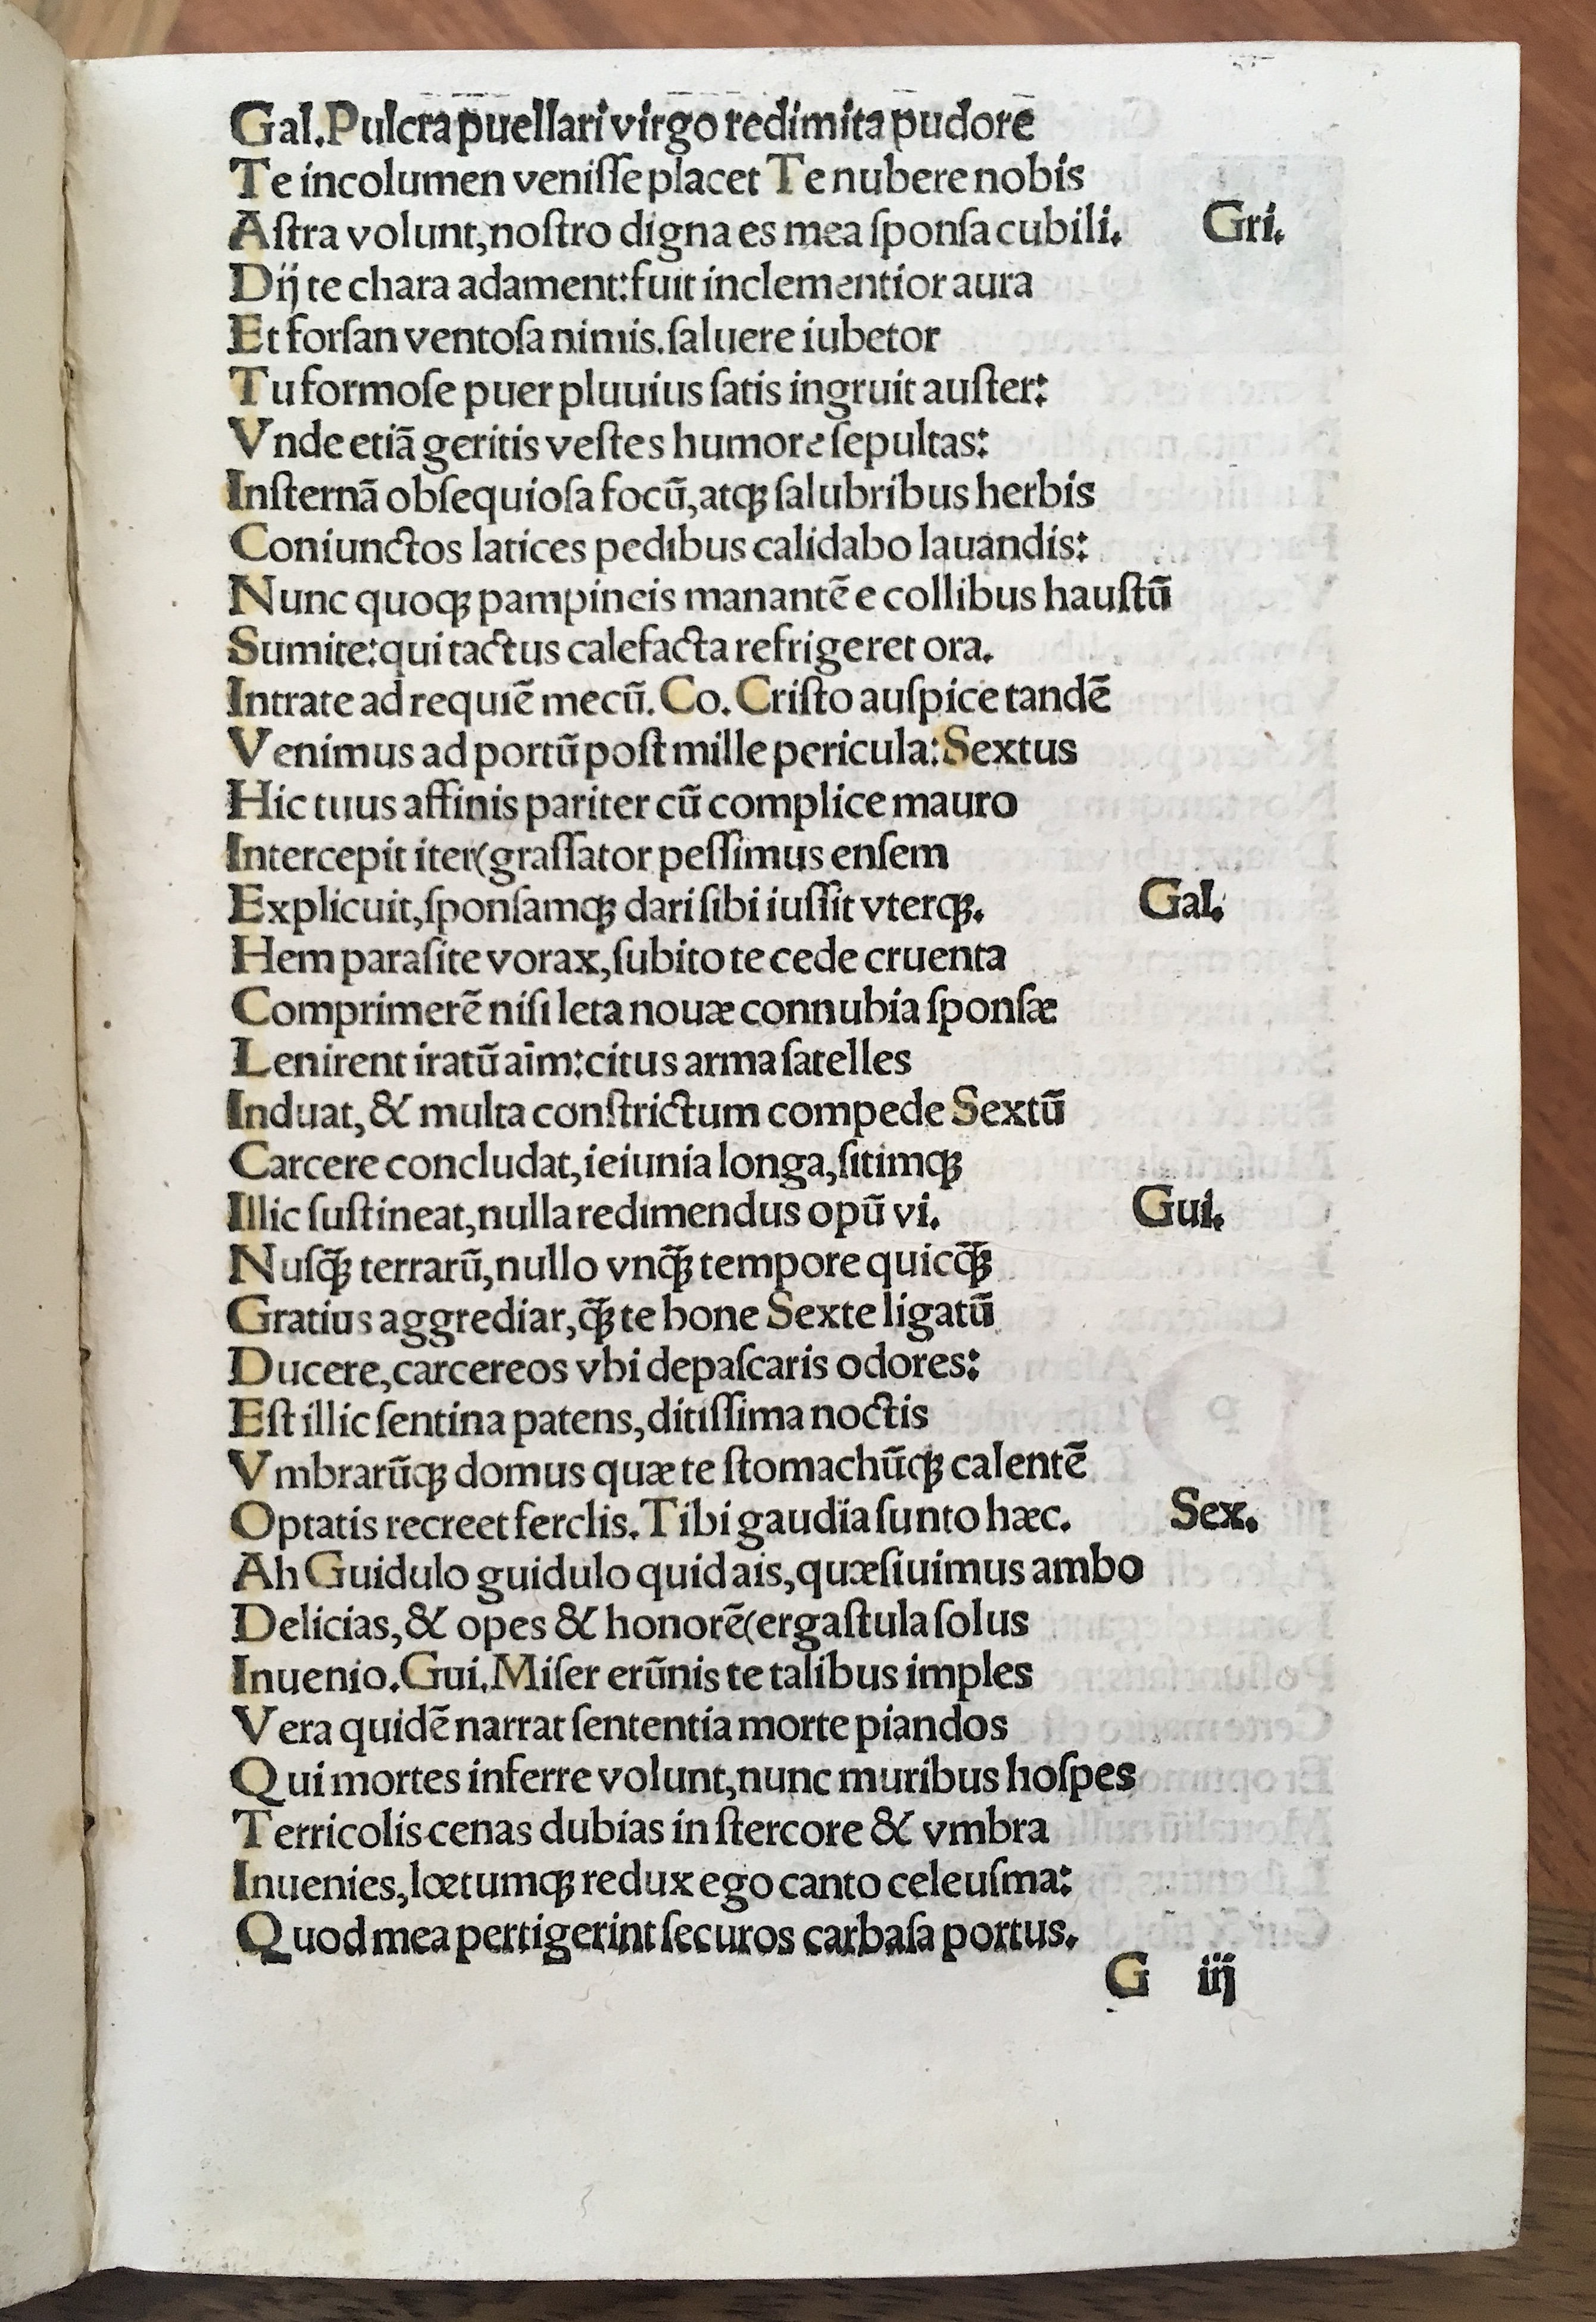 Gal.Pulcra puellari virgo redimita pudorē
Te incolumen veniſſe placet Te nubere nobis
Aſtra volunt,noſtro digna es mea ſponſa cubili. Gri.
Dij te chara adament:fuit inclementior aura
Et forſan ventoſa nimis.ſaluere iubetor
Tu formoſe puer pluuius ſatis ingruit auſter:
Vnde etiā geritis veſtes humore ſepultas:
Inſternā obſequioſa focū,atqꝫ ſalubribus herbis
Coniunctos latices pedibus calidabo lauandis:
Nunc quoqꝫ pampineis manantē e collibus hauſtū
Sumite:qui tactus calefacta refrigeret ora.
Intrate ad requiē mecū. Co. Criſto auſpice tandē
Venimus ad portū poſt mille pericula:Sextus
Hic tuus affinis pariter cū complice mauro
Intercepit iter(graſſator peſſimus enſem
Explicuit,ſponſamqꝫ dari ſibi iuſſit vterqꝫ. Gal.
Hem paraſite vorax,ſubito te cede cruenta
Comprimerē niſi leta nouæ connubia ſponſæ
Lenirent iratū aīm:citus arma ſatelles
Induat,& multa conſtrictum compede Sextū
Carcere concludat,ieiunia longa,ſitimqꝫ
Illic ſuſtineat,nulla redimendus opū vi. Gui.
Nuſq̄ꝫ terrarū,nullo vnq̄ꝫ tempore quicq̄ꝫ
Gratius aggrediar,q̄ꝫ te bone Sexte ligatū
Ducere,carcereos vbi depaſcaris odores:
Eſt illic ſentina patens,ditiſſima noctis
Vmbrarūqꝫ domus quæ te ſtomachūqꝫ calentē
Optatis recreet ferclis.Tibi gaudia ſunto hæc. Sex.
Ah Guidulo guidulo quid ais,quæſiuimus ambo
Delicias,& opes & honorē(ergaſtula ſolus
Inuenio.Gui.Miſer erūnis te talibus imples
Vera quidē narrat ſententia morte piandos
Qui mortes inferre volunt,nunc muribus hoſpes
Terricolis cenas dubias in ſtercore & vmbra
Inuenies,lœtumqꝫ redux ego canto celeuſma:
Quod mea pertigerint ſecuros carbaſa portus.
G iij